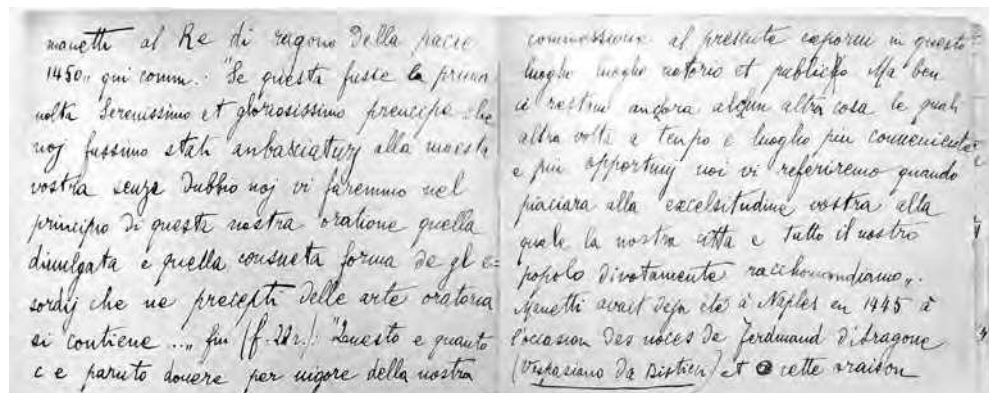 manetti al Re di ragona della pacie
1450,, qui comm. : "Se questa fusse la prima
uolta Serenissimo et gloriosissimo prencipe che
noj fussimo stati anbasciaturj alla maesta
vostra senza dubbio noj vi faremmo nel
principio di questa nostra oratione quella
diuulgata e quella consueta forma de gl e=
sordij che ne precepti delle arte oratoria
si contiene ...,, fin (f. 22r.): "Questo e quanto
c e paruto douere per uigore della nostra
commessione al presente esporui in questo
luogho luogho notorio et publicho Ma ben
ci restano anchora alchun altra cosa le quali
altra volta a tempo e luogho piu conueniente
e piu opportunj noi vi referiremo quando
piaciara alla excelsitudine vostra alla
quale la nostra citta e tutto il nostro
popolo divotamente racchomandiamo,,.
Manetti avait deja été à Naples en 1445 à
l'occasion des noces de Ferdinand d'Aragone
(Vespasiano da Bisticci) et cette oraison